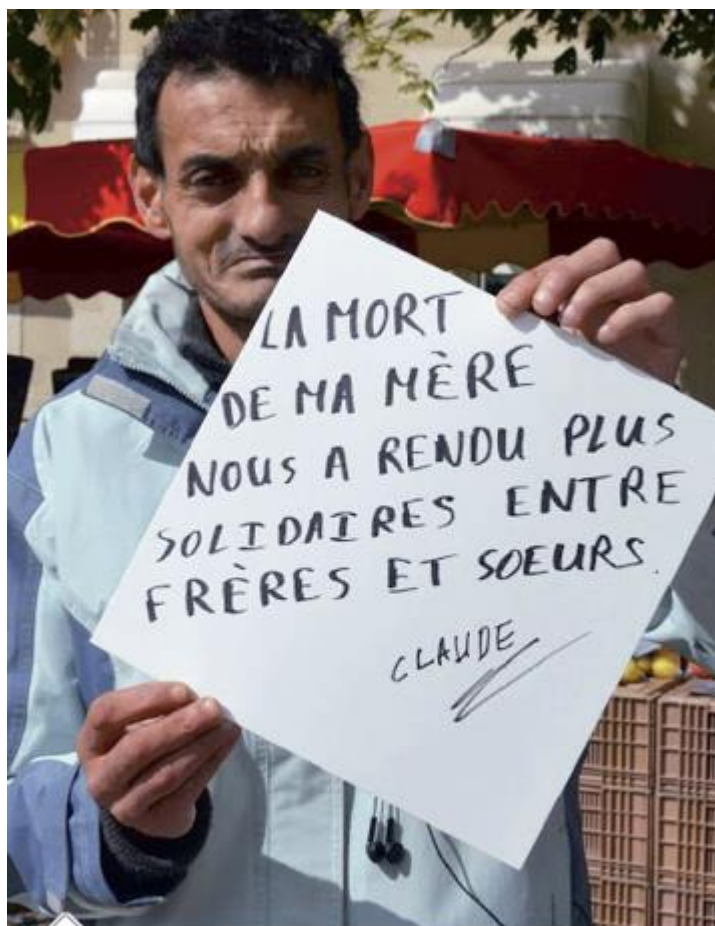 LA MORT
DE MA MÈRE
NOUS A RENDU PLUS
SOLIDAIRES ENTRE
FRÈRES ET SOEURS.
CLAUDE